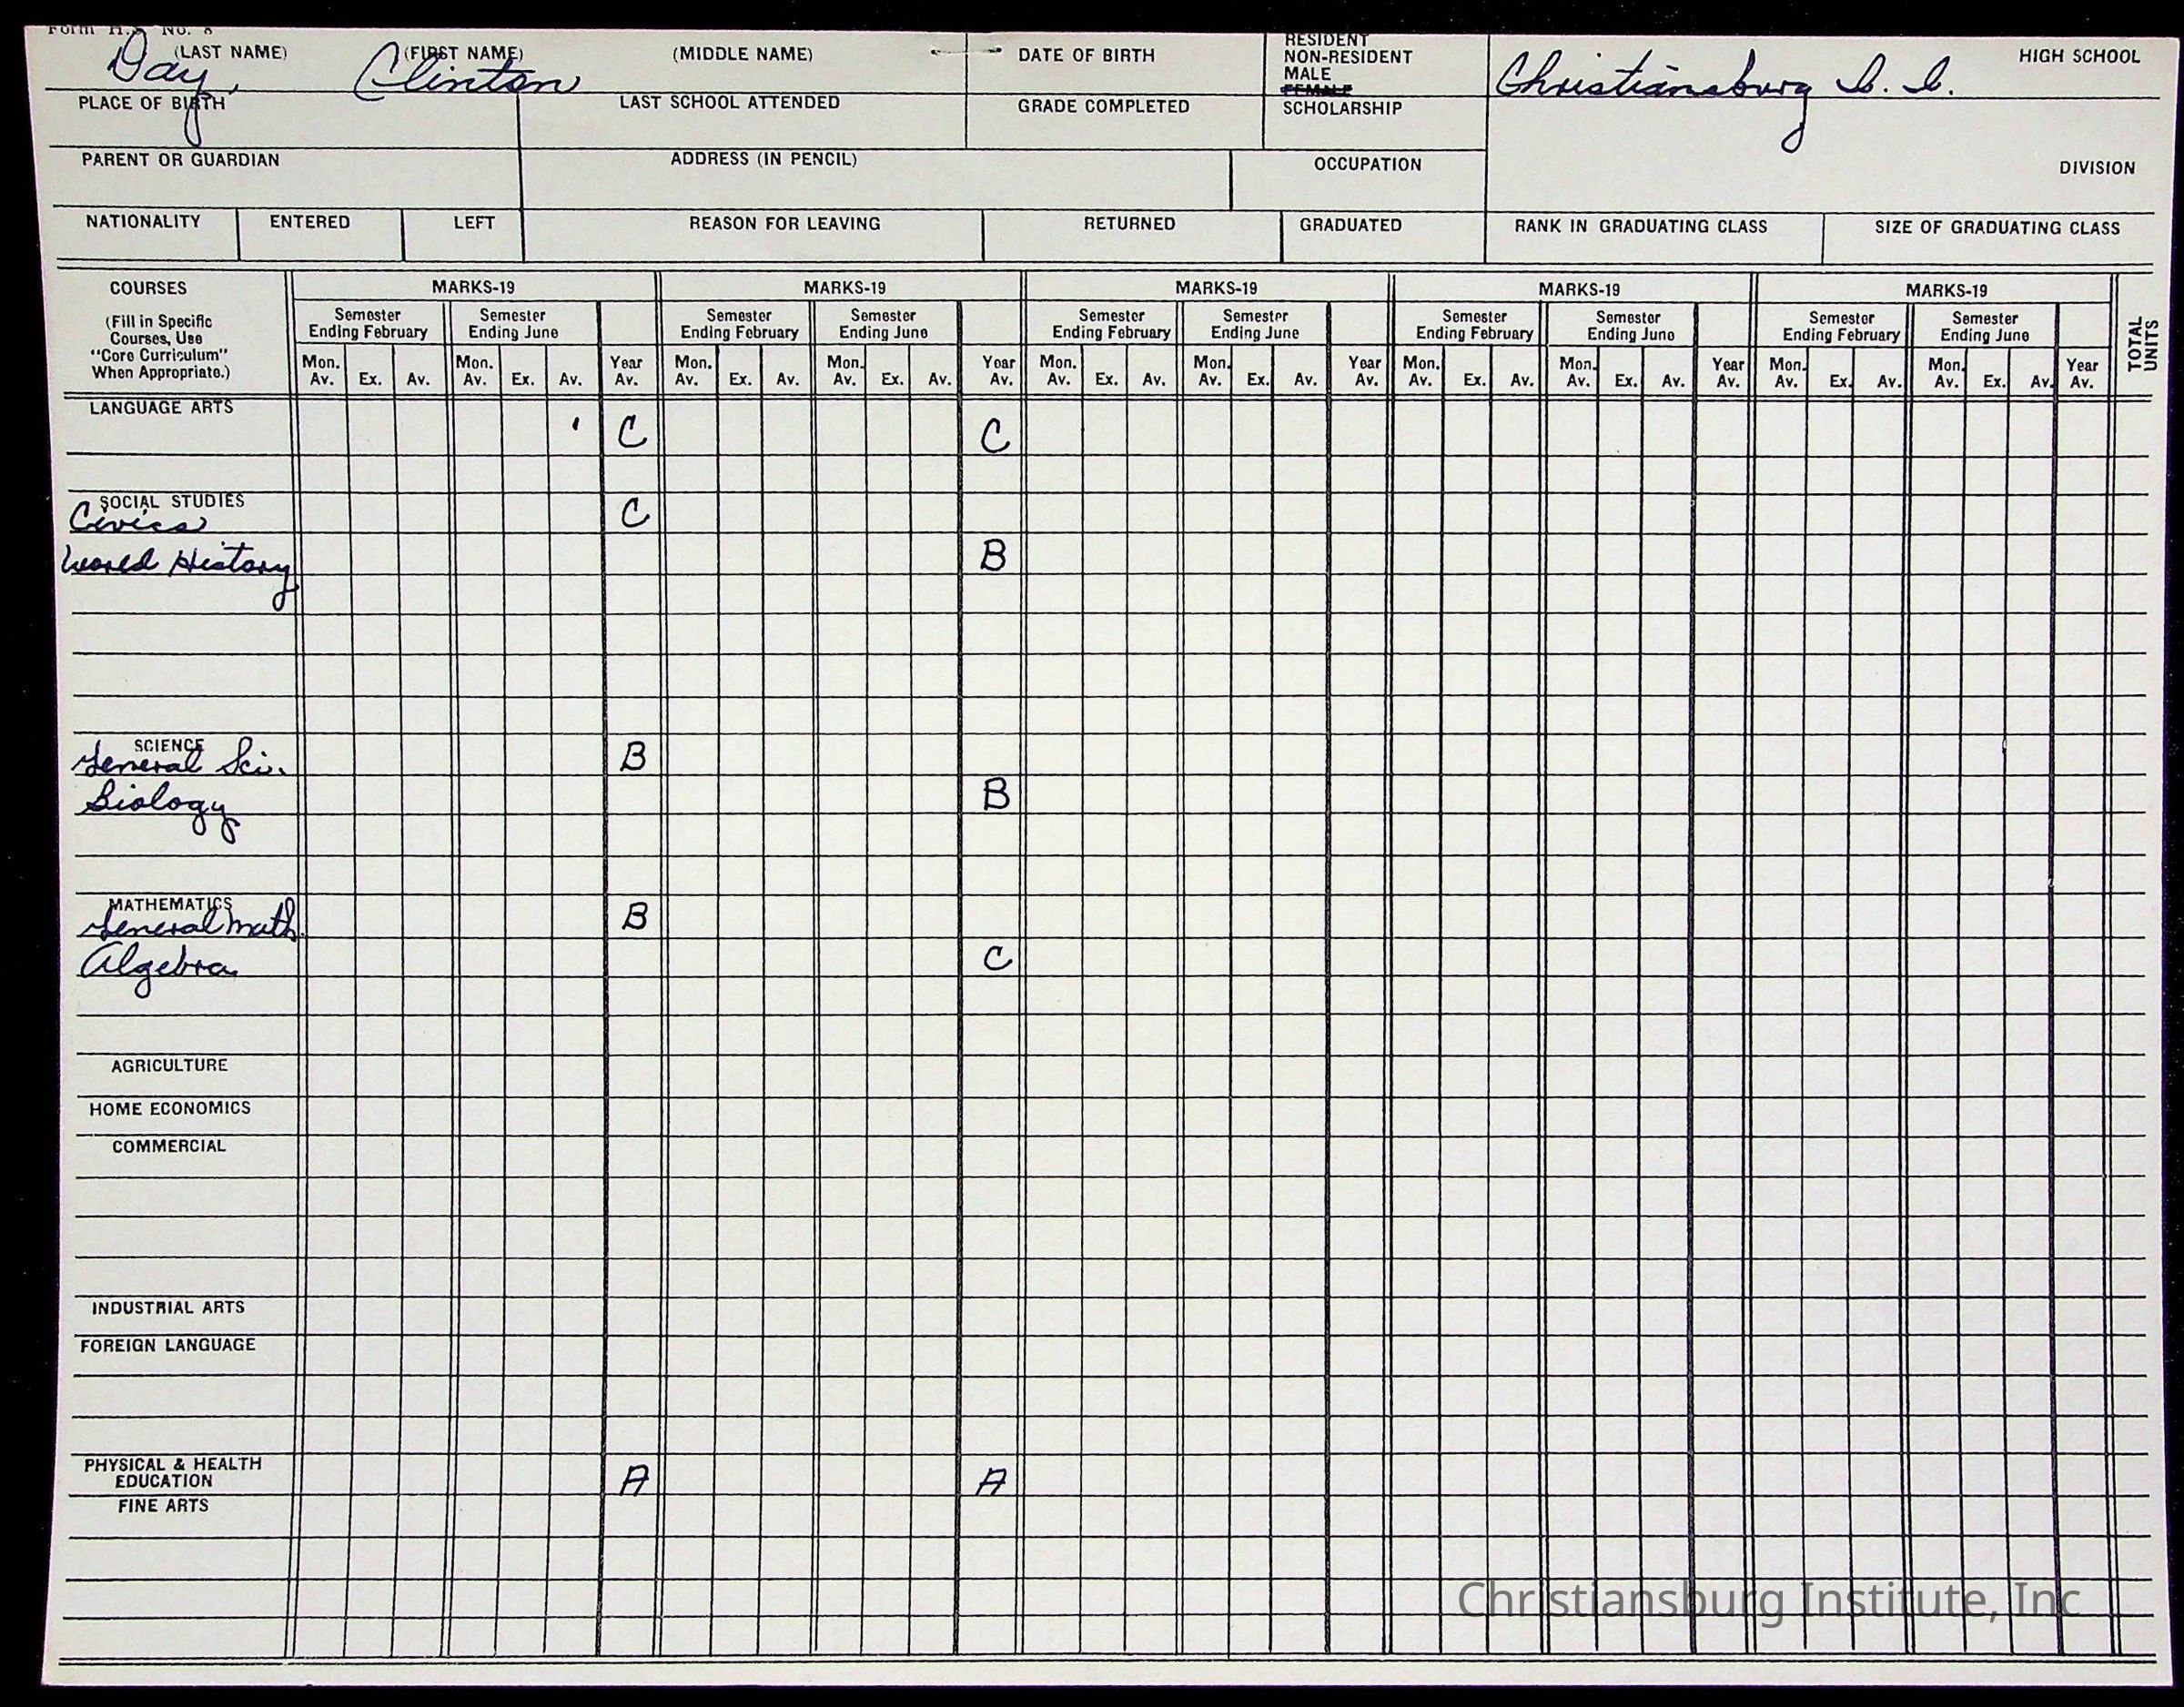 Form H.S. No. 8
(LAST NAME) (FIRST NAME) (MIDDLE NAME) DATE OF BIRTH RESIDENT HIGH SCHOOL
NON-RESIDENT
MALE
FEMALE
Day, Clinton Christiansburg I. I.
PLACE OF BIRTH LAST SCHOOL ATTENDED GRADE COMPLETED SCHOLARSHIP
PARENT OR GUARDIAN ADDRESS (IN PENCIL) OCCUPATION DIVISION
NATIONALITY ENTERED LEFT REASON FOR LEAVING RETURNED GRADUATED RANK IN GRADUATING CLASS SIZE OF GRADUATING CLASS
COURSES MARKS-19 MARKS-19 MARKS-19 MARKS-19 MARKS-19 TOTAL UNITS
(Fill in Specific Semester Semester Semester Semester Semester Semester Semester Semester Semester Semester
Courses, Use Ending February Ending June Ending February Ending June Ending February Ending June Ending February Ending June Ending February Ending June
"Core Curriculum" Mon. Mon. Year Mon. Mon. Year Mon. Mon. Year Mon. Mon. Year Mon. Mon. Year
When Appropriate.) Av. Ex. Av. Av. Ex. Av. Av. Av. Ex. Av. Av. Ex. Av. Av. Av. Ex. Av. Av. Ex. Av. Av. Av. Ex. Av. Av. Ex. Av. Av. Av. Ex. Av. Av. Ex. Av. Av.
LANGUAGE ARTS C C
SOCIAL STUDIES
Civics C
World History B
SCIENCE
General Sci. B
Biology B
MATHEMATICS
General Math. B
Algebra C
AGRICULTURE
HOME ECONOMICS
COMMERCIAL
INDUSTRIAL ARTS
FOREIGN LANGUAGE
PHYSICAL & HEALTH
EDUCATION A A
FINE ARTS
Christiansburg Institute, Inc